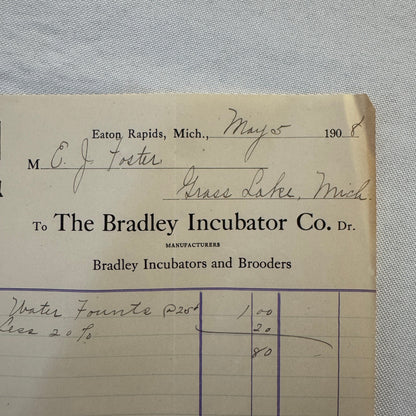 Eaton Rapids, Mich., May 5 1908
M E. J. Foster
Grass Lake, Mich.
To The Bradley Incubator Co. Dr.
MANUFACTURERS
Bradley Incubators and Brooders
Water Founts @ 25¢ 1 00
Less 20% 20
80